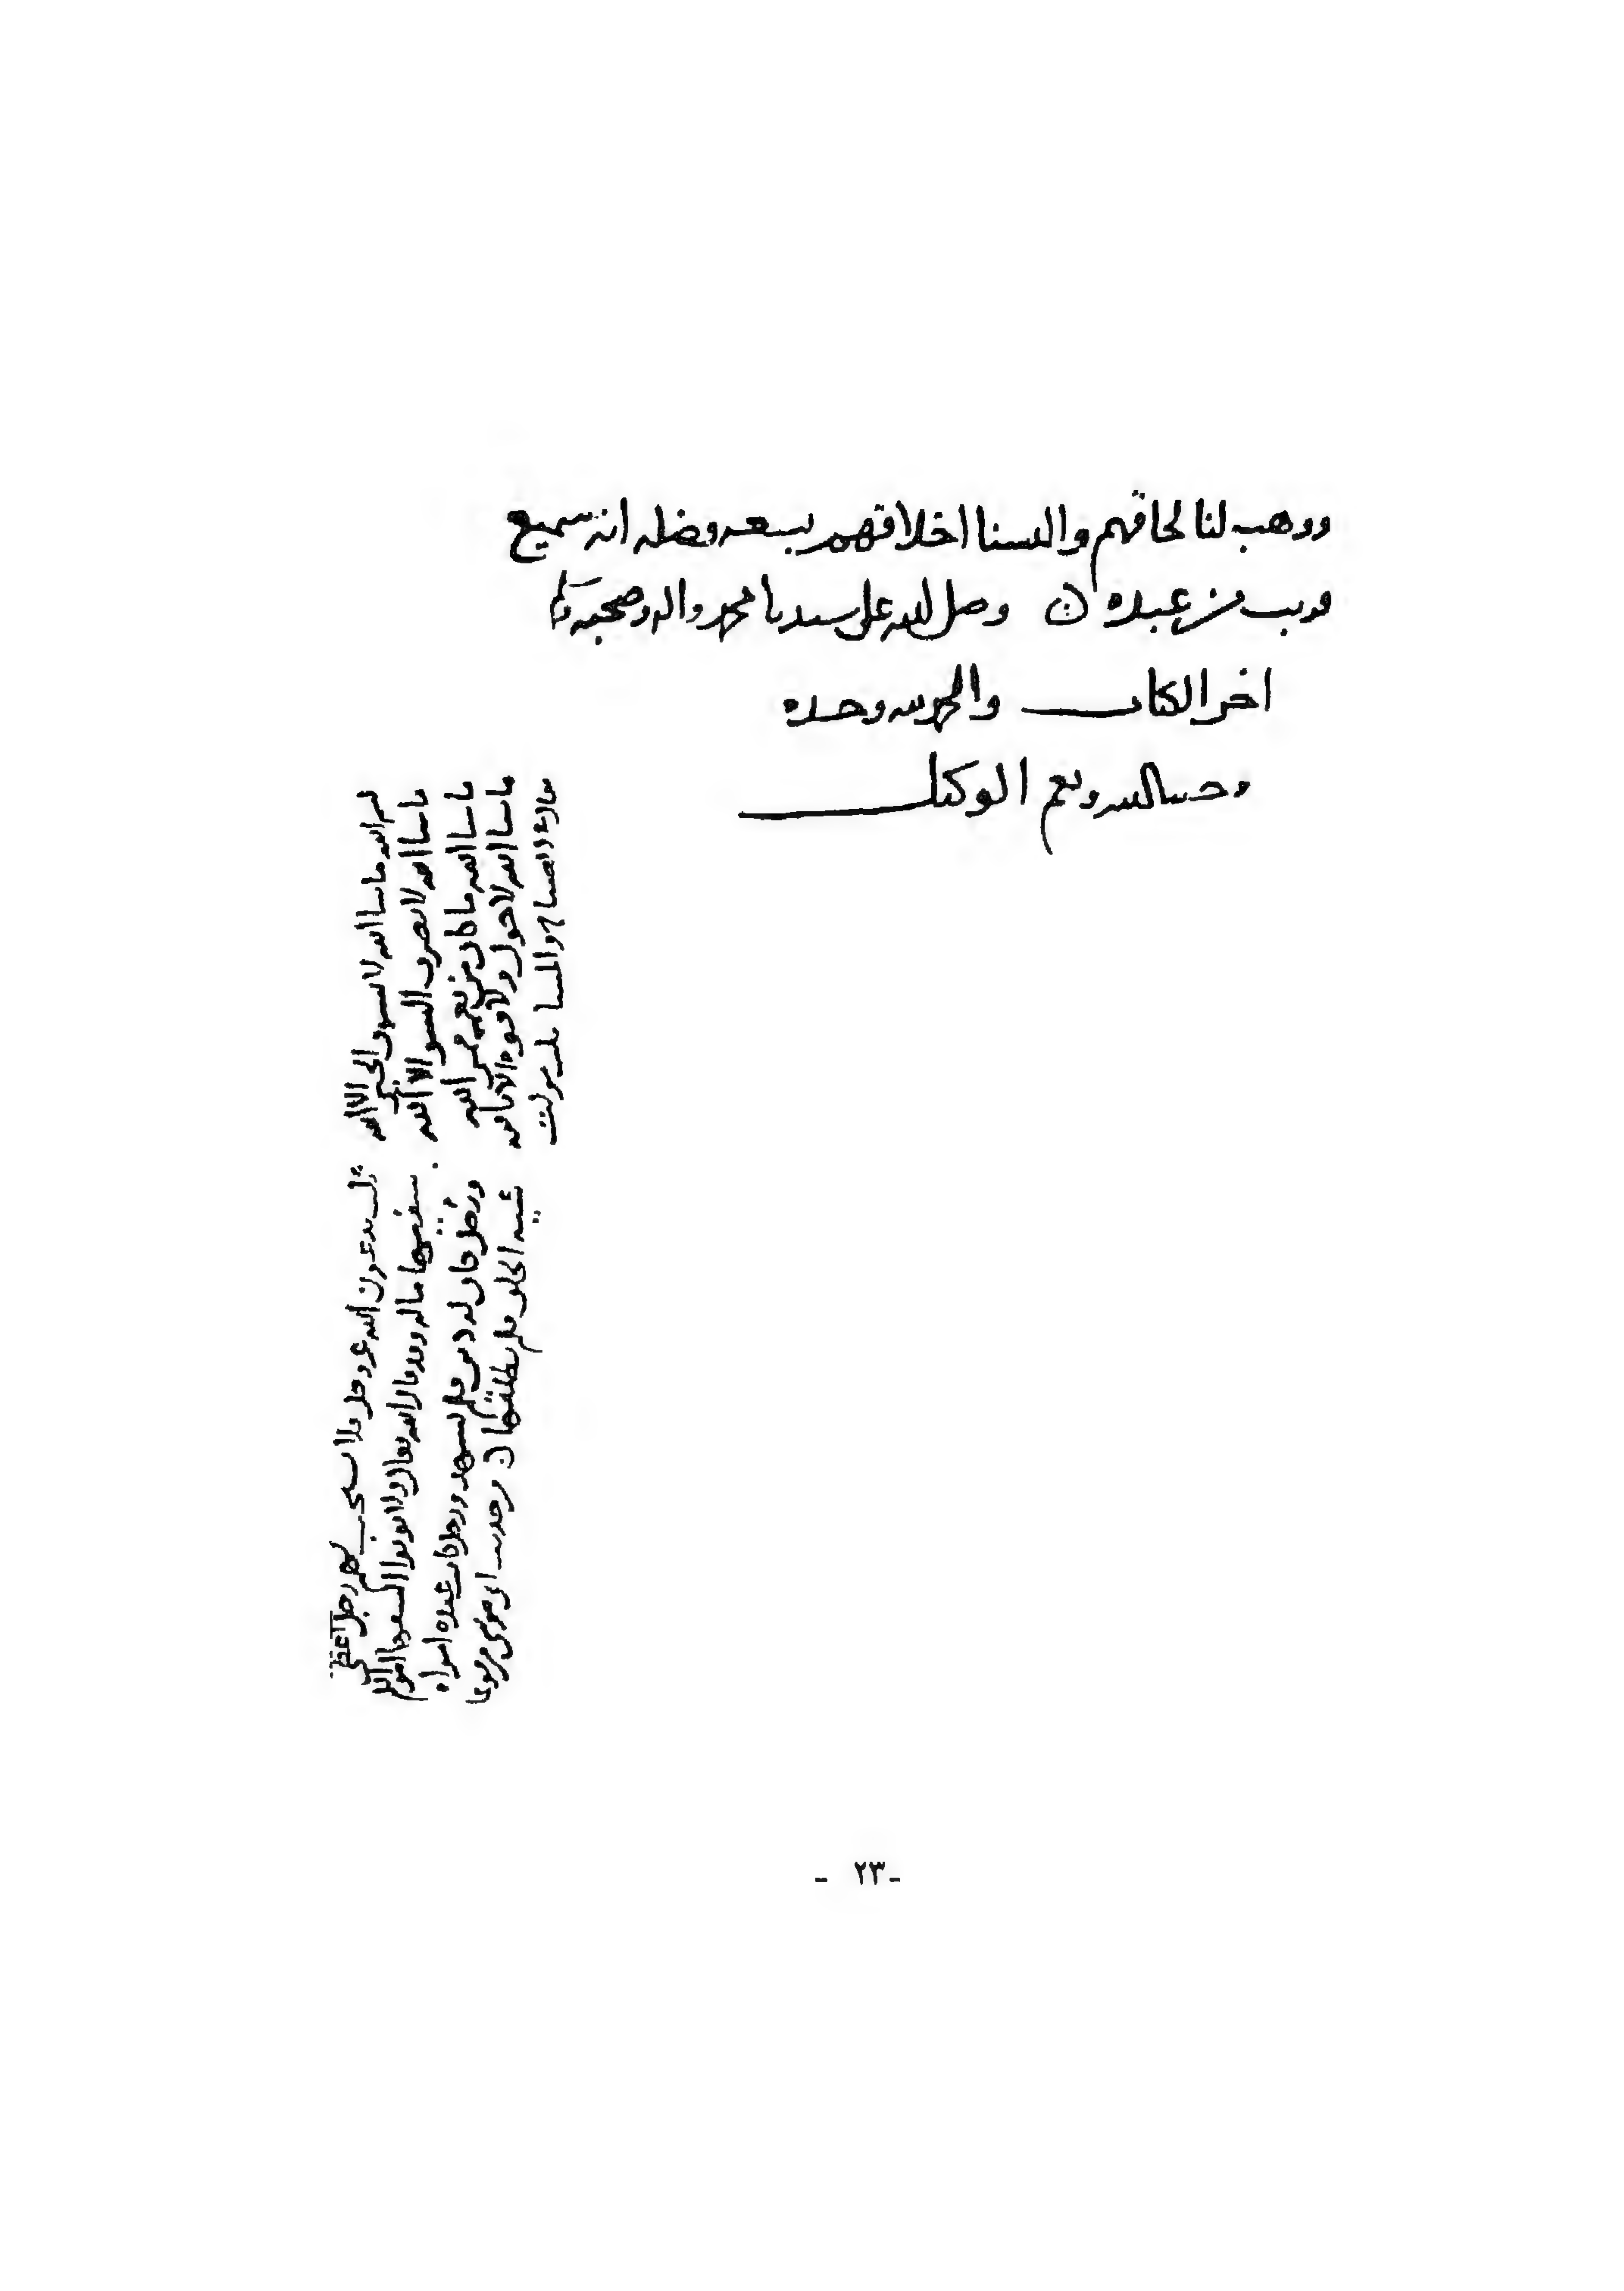 ووهب لنا لحاقهم والبسنا اخلاقهم بسعه فضله انه سميع
قريب من عبده ن وصلى الله على سيدنا محمد واله وصحبه وسلم
اخر الكتاب والحمد لله وحده
وحسبنا الله ونعم الوكيل
بسم الله ماشا الله لا يسوق الخير الا الله
ماشا الله لا يصرف السو الا الله
ماشا الله ما كان من نعمه فمن الله
ماشا الله لا حول ولا قوه الا بالله
الصباح والمسا
يدعون الله عز وجل فلا يستجيب لهم رجل اعطى
سفيها ماله وقد قال الله تعالى ولا توتوا السفها اموالكم
ورجل كان له دين فلم يشهد ورجل كانت عنده امراه
سيه الخلق فلم يطلقها ن وحديث ابو موسى مرفوعا
- ٢٣ -